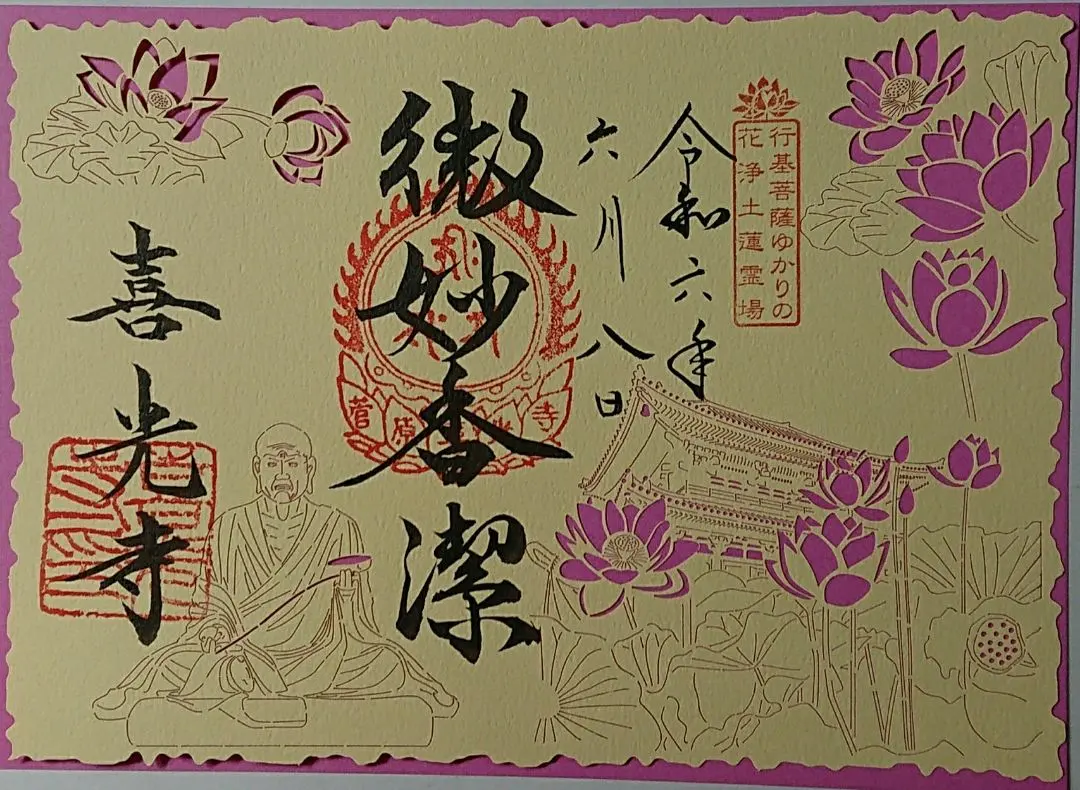 行基菩薩ゆかりの
花浄土蓮霊場
令和六年
六月八日
微妙香潔
喜光寺